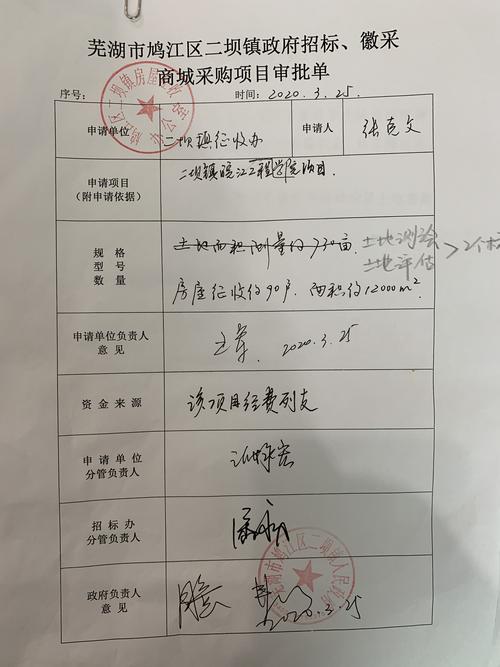 芜湖市鸠江区二坝镇政府招标、徽采
商城采购项目审批单
序号： 时间：2020.3.25.
申请单位 二坝镇征收办 申请人 张克文
申请项目
（附申请依据） 二坝镇皖江工程学院项目.
规格
型号
数量
土地面积测量约730亩.
房屋征收约90户.面积约12000m².
土地测绘
土地评估
>2个标
申请单位负责人
意见 2020.3.25
资金来源 该项目经费列支
申请单位
分管负责人
招标办
分管负责人
政府负责人
意见 同意 2020.3.25